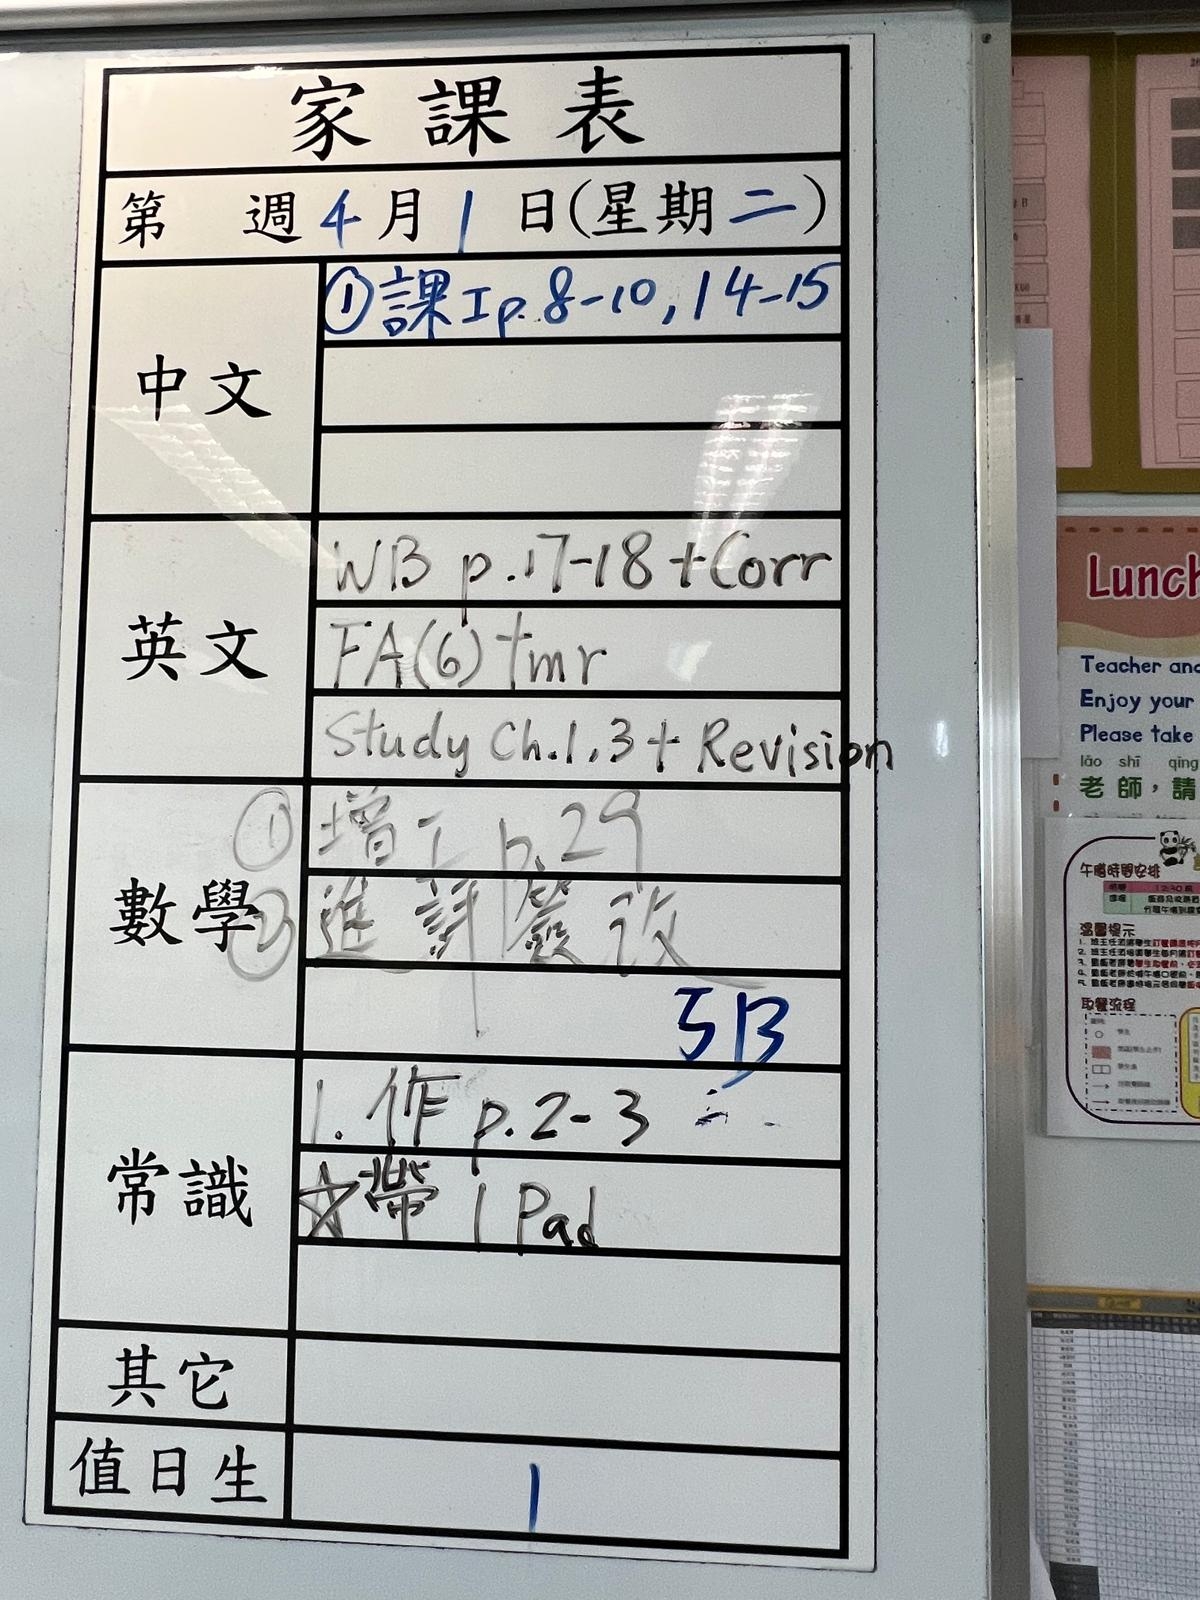 家課表
第 週 4月1日(星期二)
中文
①課I p.8-10, 14-15
英文
WB p.17-18 + Corr
FA(6) tmr
Study Ch.1,3 + Revision
數學
①增工 p.29
②進評簽改
5B
常識
1. 作 p.2-3
☆帶 iPad
其它
值日生
1
Lunch
Teacher and
Enjoy your
Please take
lǎo shī qǐng
老師，請
午膳時間安排
溫馨提示
取餐流程